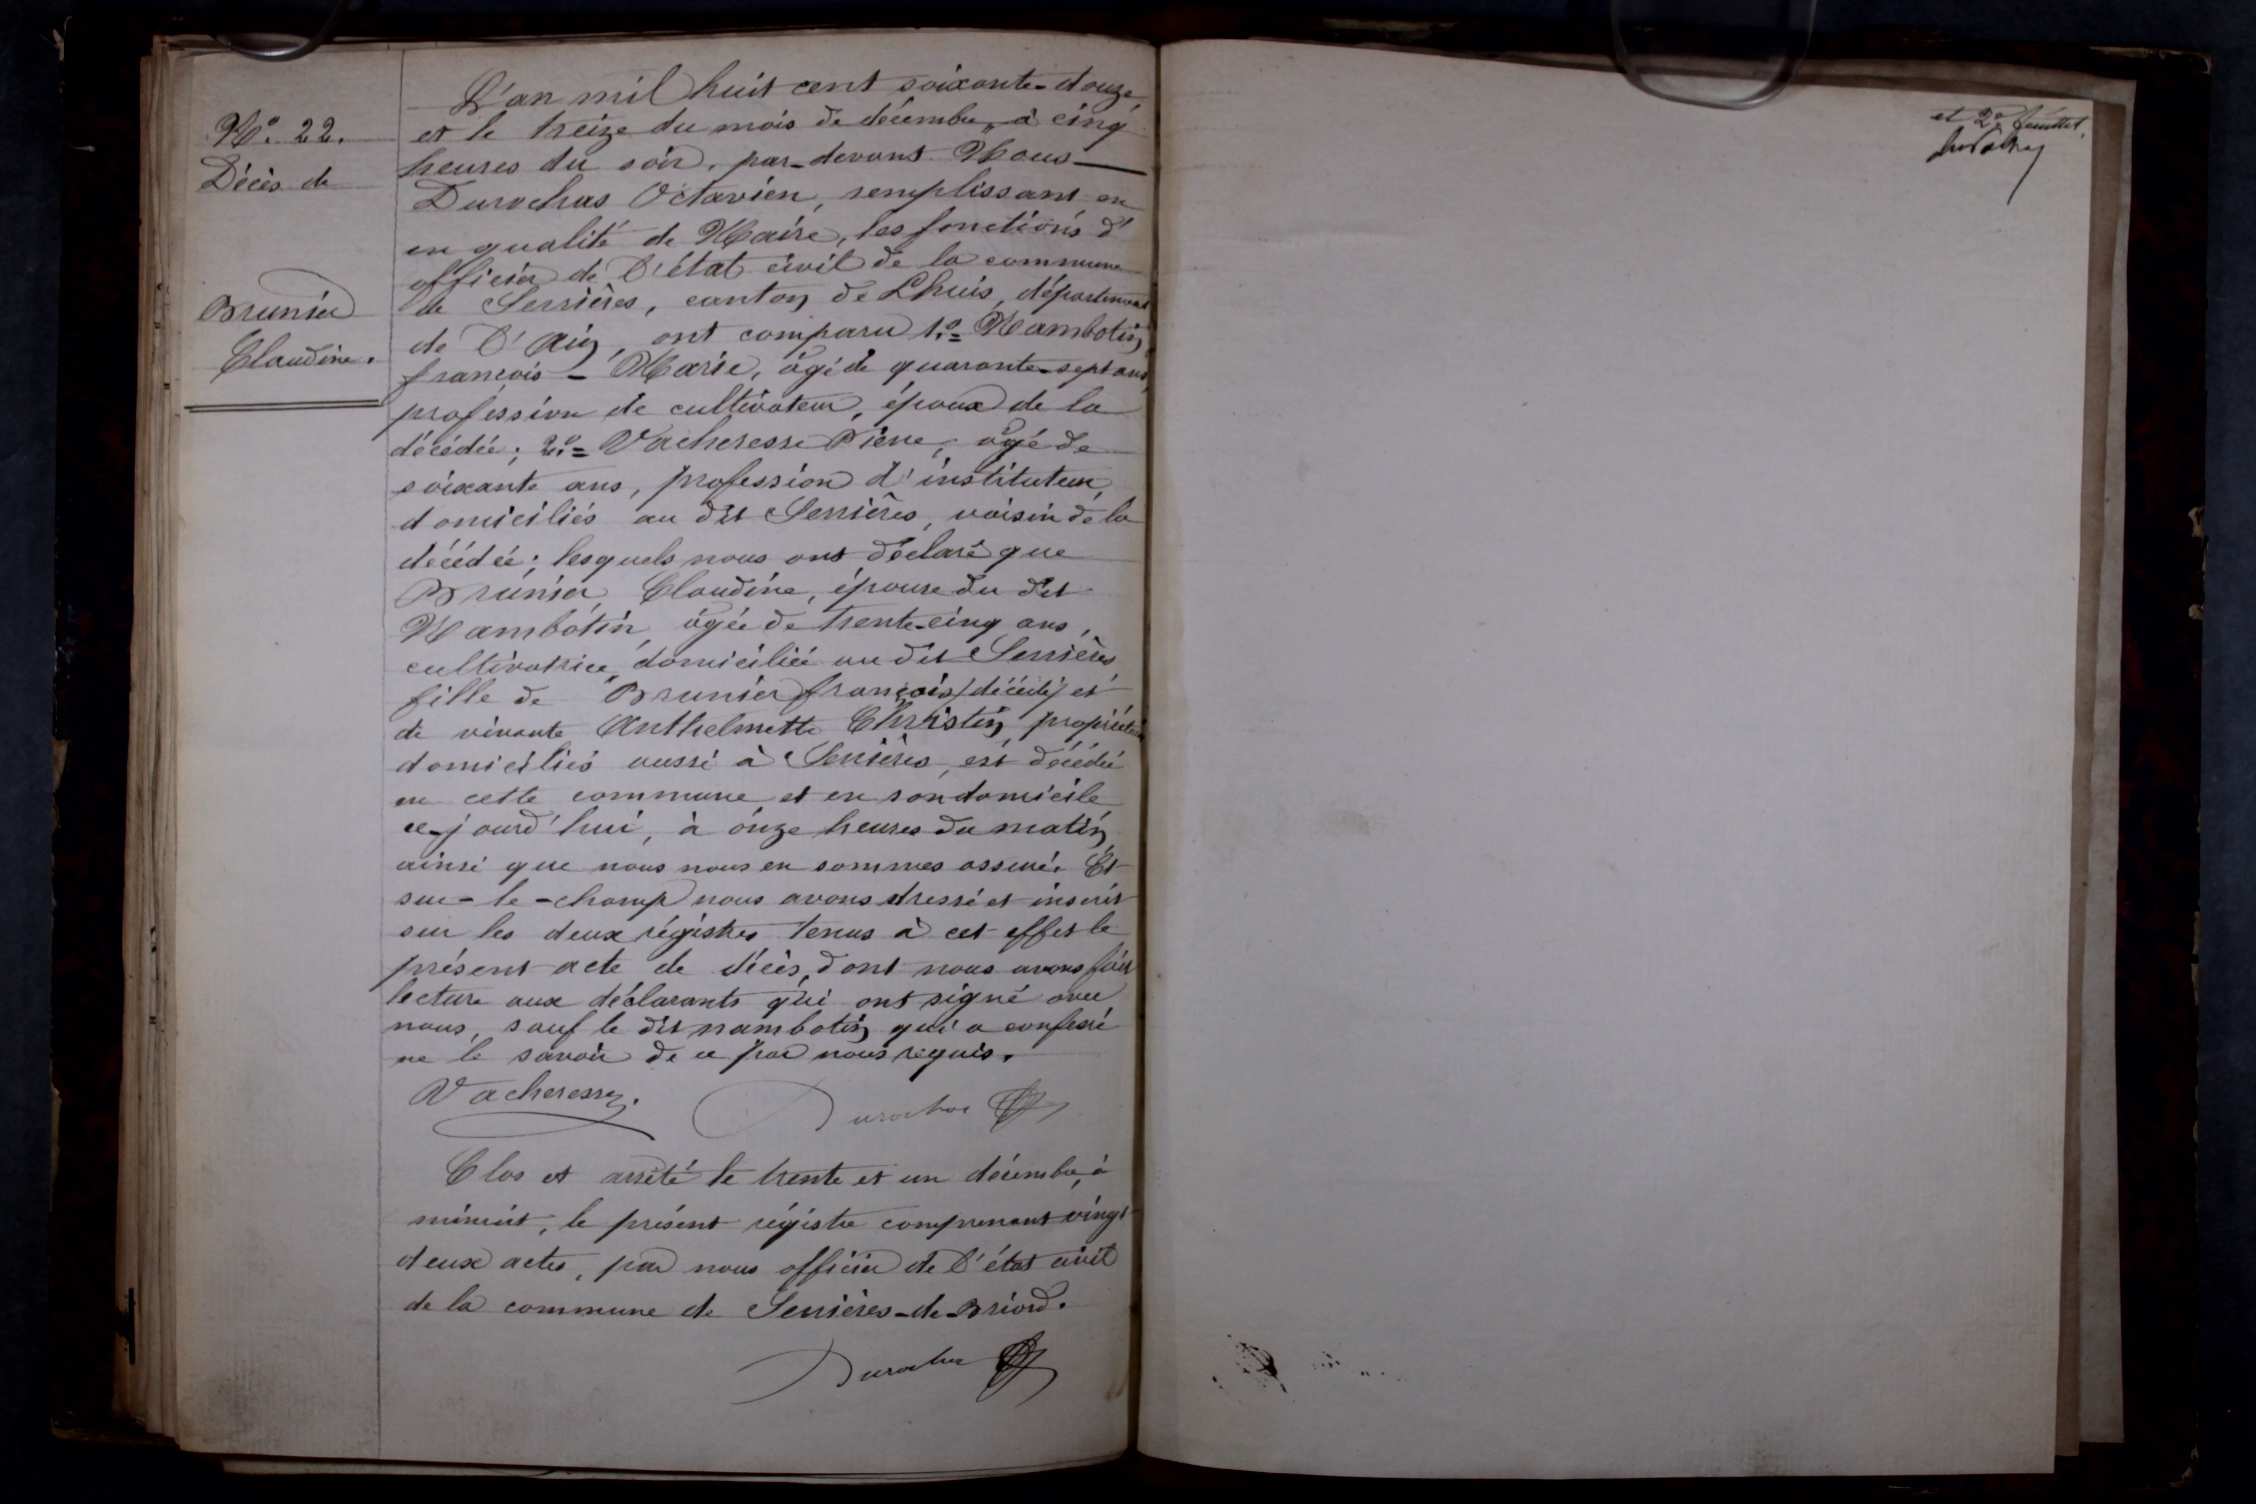 N.º 22.
Décès de
Brunier
Claudine.
L'an mil huit cent soixante-douze
et le treize du mois de décembre, à cinq
heures du soir, par-devant Nous
Durochas Octavien, remplissant en
en qualité de Maire, les fonctions d'
officier de l'état civil de la commune
de Serrières, canton de Lhuis, département
de l'Ain, ont comparu 1.º= Nambotin
françois - Marie, âgé de quarante-sept ans,
profession de cultivateur, époux de la
décédée; 2.º= Vacheresse Pierre, âgé de
soixante ans, profession d'instituteur,
domiciliés au dit Serrières, voisin de la
décédée; lesquels nous ont déclaré que
Brunier Claudine, épouse du dit
Nambotin, âgée de trente-cinq ans,
cultivatrice, domiciliée au dit Serrières
fille de Brunier françois (décédé) et
de vivante Anthelmette Christin, propriétaire
domiciliés aussi à Serrières, est décédée
en cette commune et en son domicile
ce-jourd'hui, à onze heures du matin
ainsi que nous nous en sommes assuré. Et
sur-le-champ nous avons dressé et inscrit
sur les deux régistres tenus à cet effet le
présent acte de décès, dont nous avons fait
lecture aux déclarants qui ont signé avec
nous, sauf le dit nambotin qui a confessé
ne le savoir de ce par nous requis.
Vacheresse.
Durochas
Clos et arrêté le trente et un décembre, à
minuit, le présent régistre comprenant vingt
deux actes, par nous officier de l'état civil
de la commune de Serrières-de-Briord.
Durochas
et 2e feuillet.